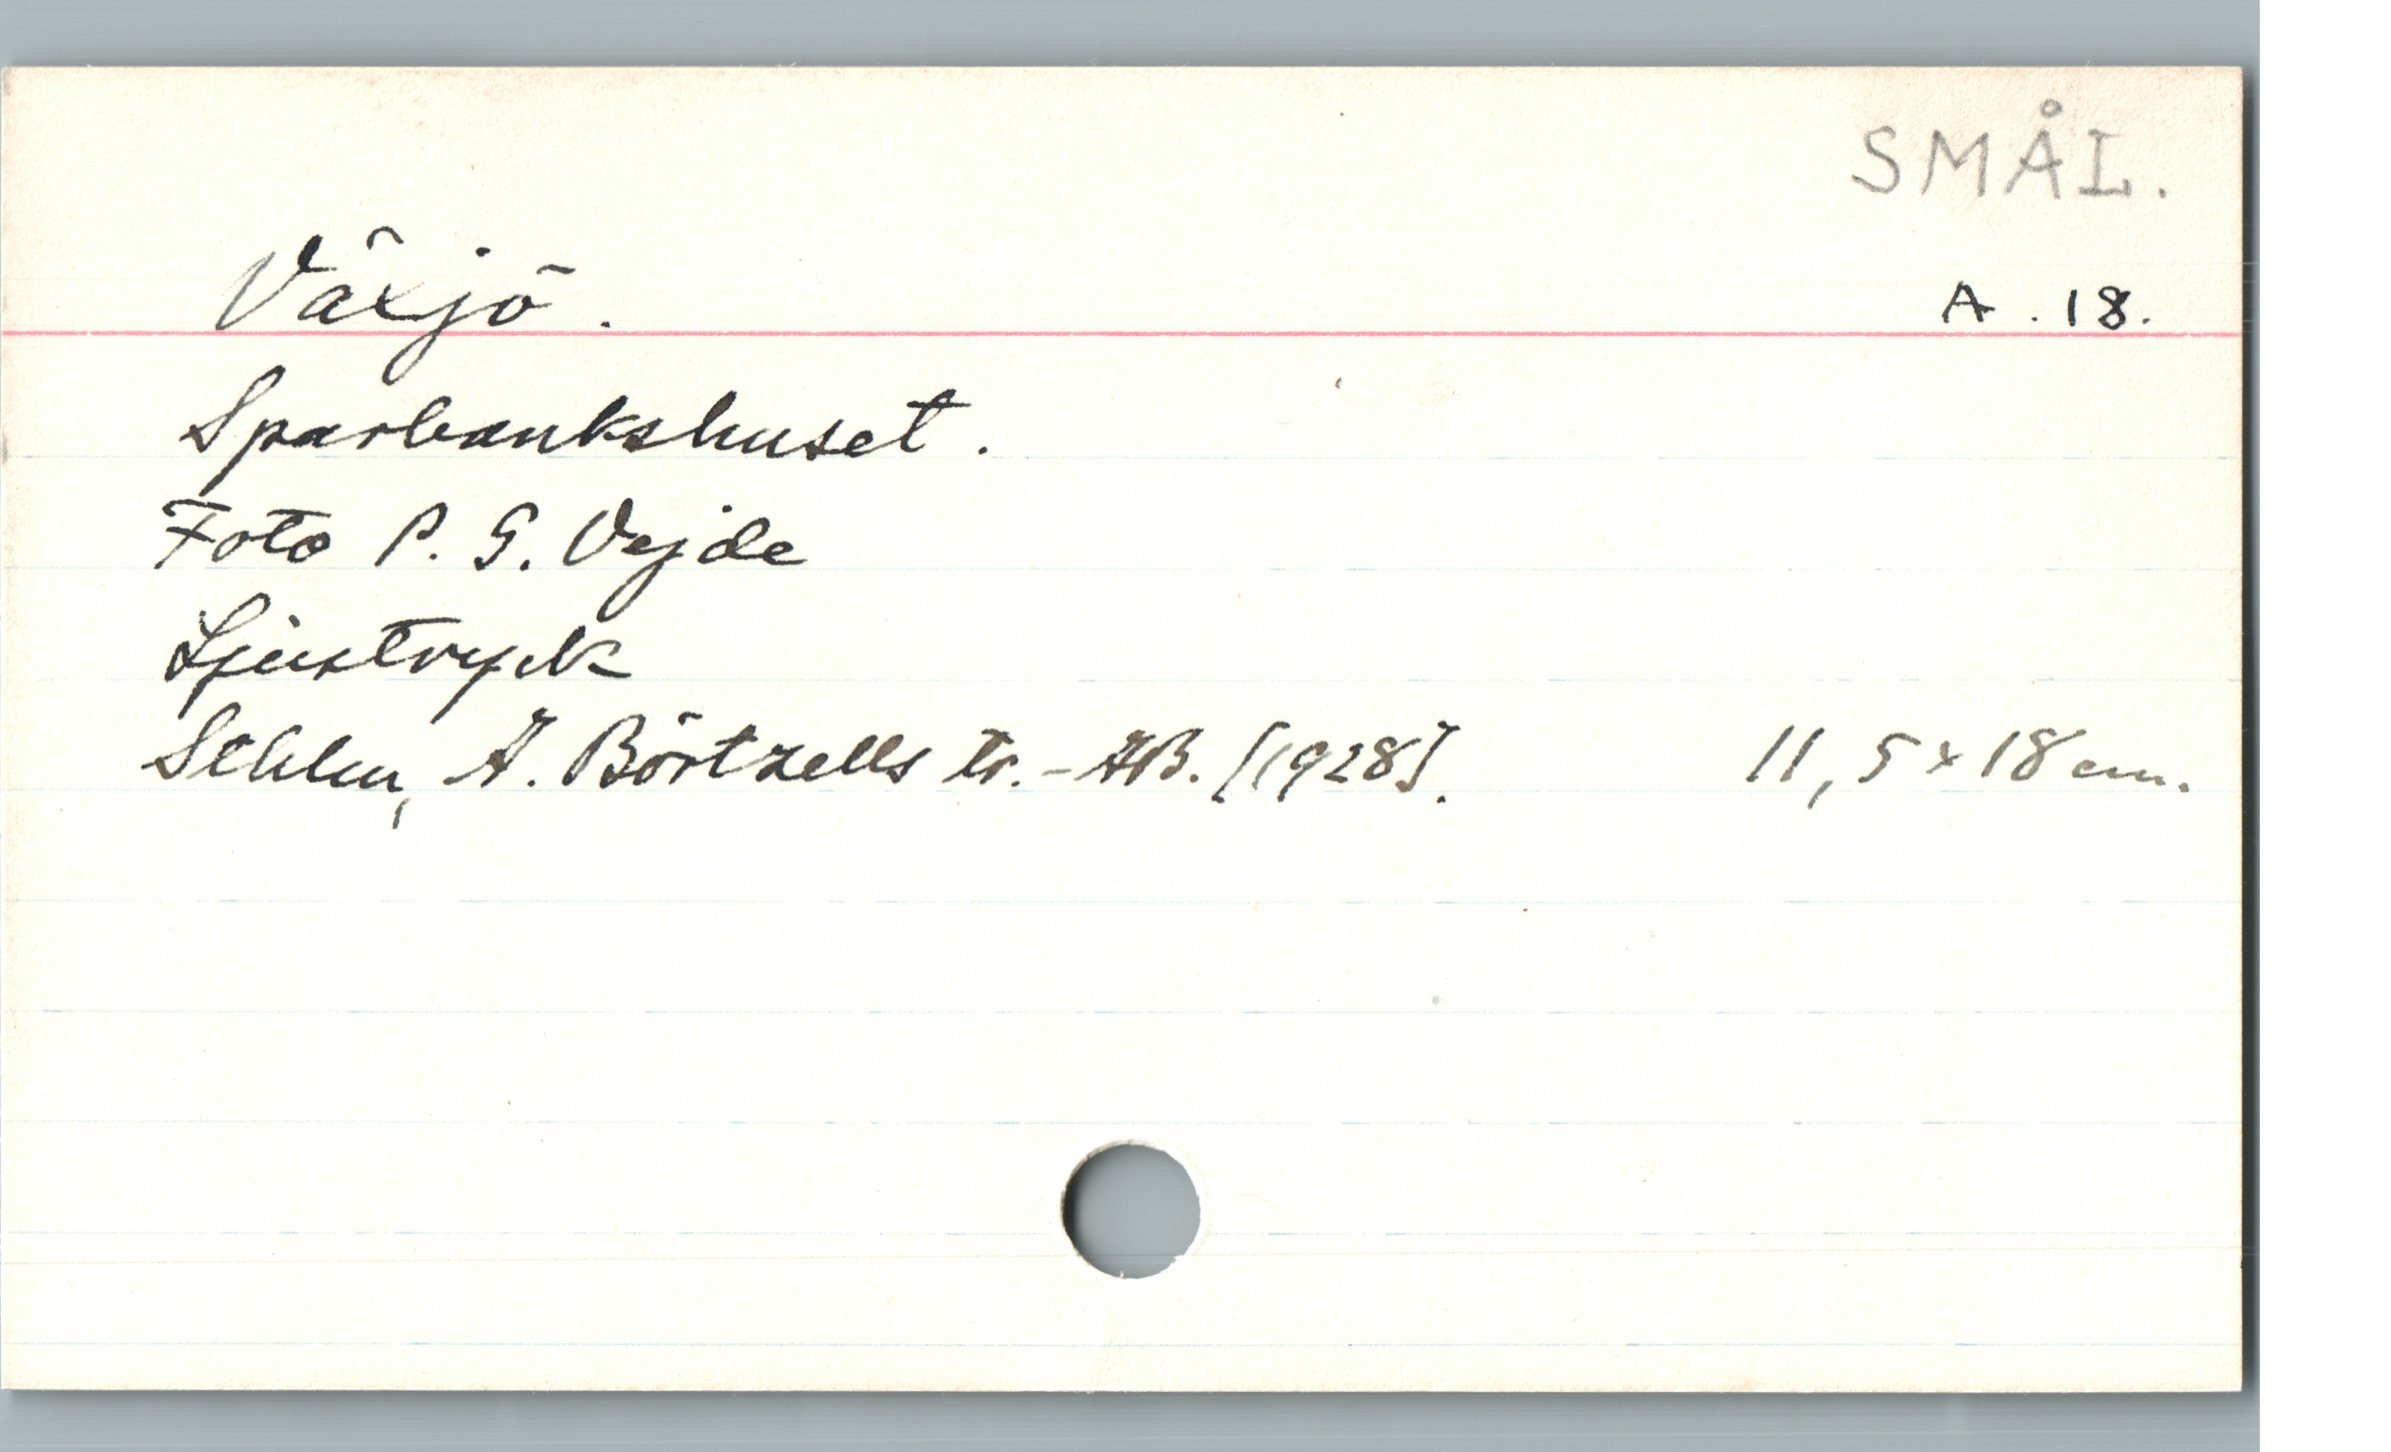 SMÅL.
Växjö.
A. 18.
Sparbankshuset.
Foto P. G. Vejde
Ljustryck
Sthlm, A. Börtzells tr.-AB. [1928]. 11,5 x 18 cm.